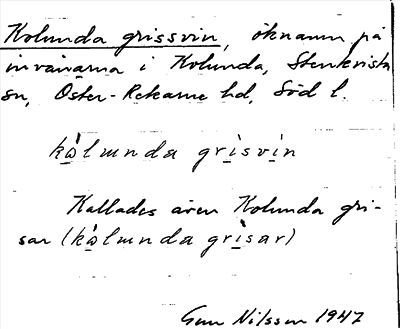 Kolunda grissvin, öknamn på
invånarna i Kolunda, Stenkvista
sn, Öster-Rekarne hd, Söd l.
kò̱lunda gri̱svi̱n
Kallades även Kolunda gri-
sar (kò̱lunda grì̱sar)
Gun Nilsson 1947